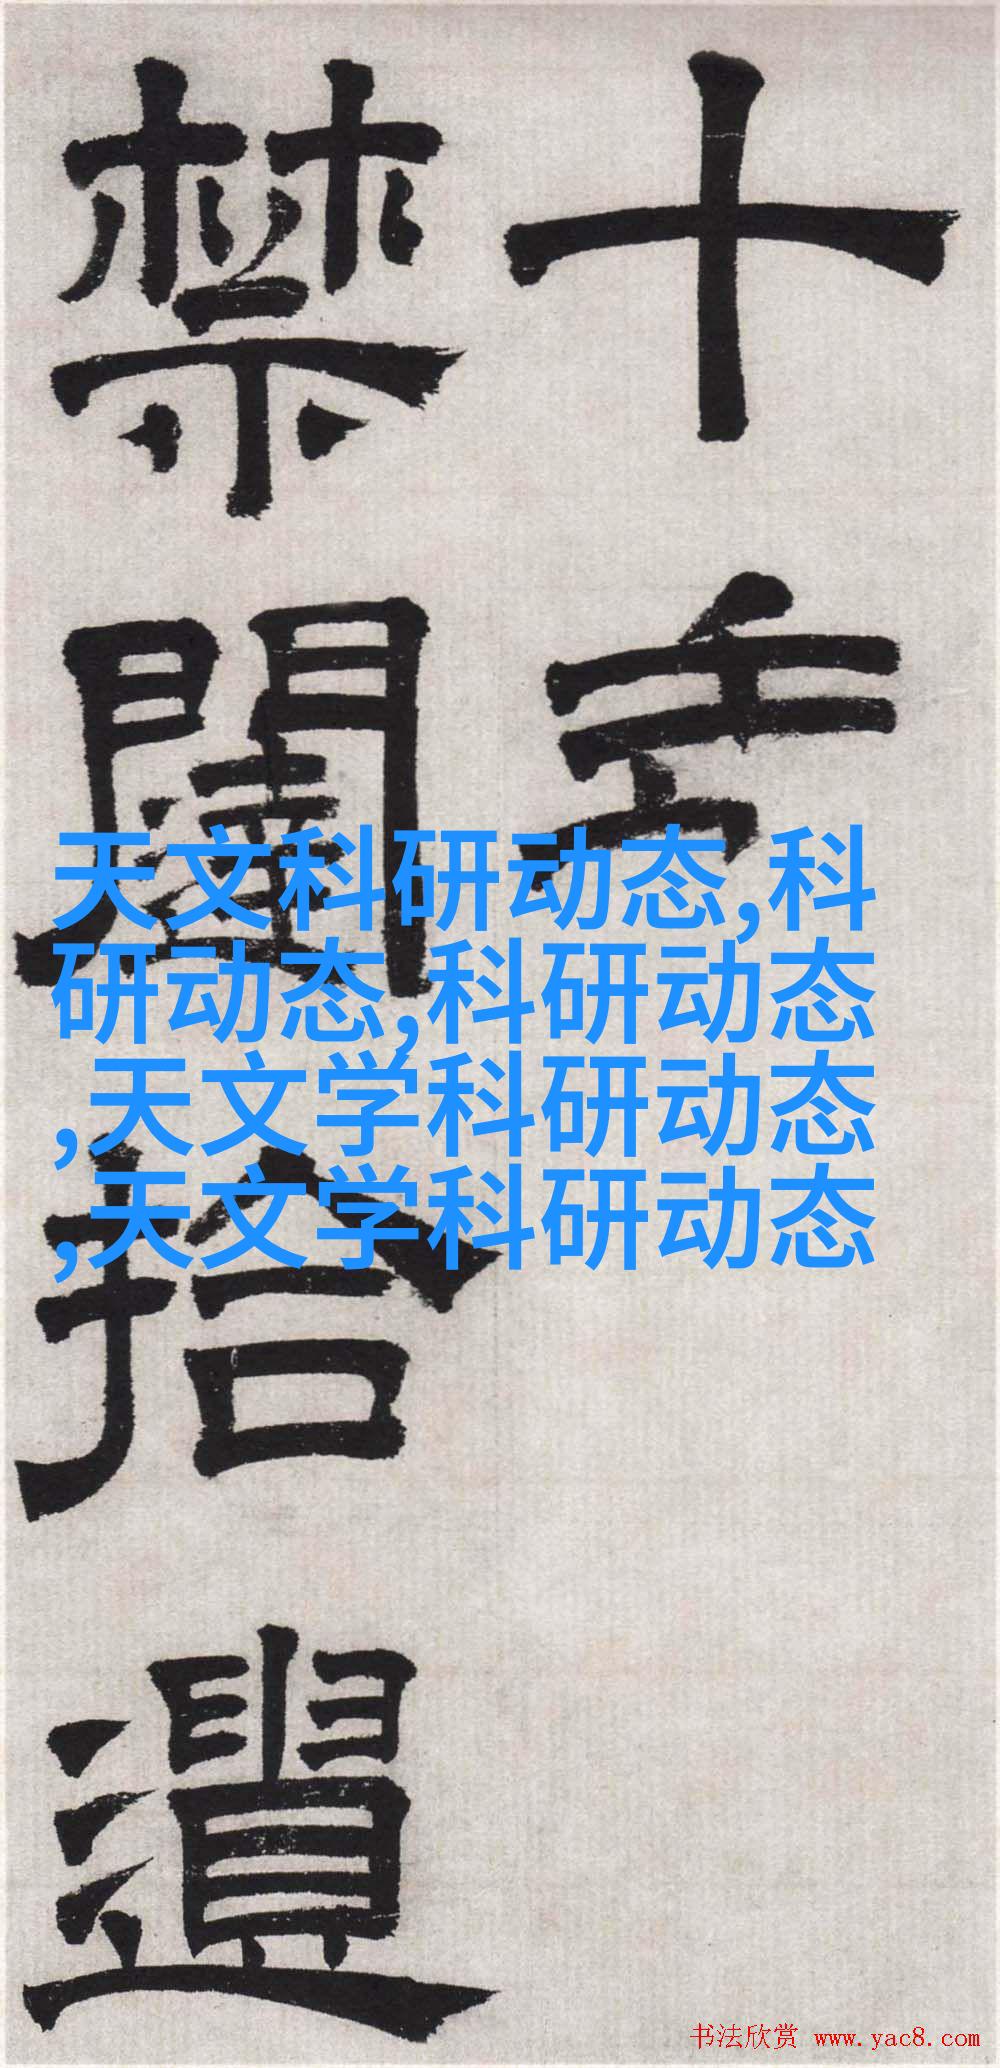 十
禁闥拾遺
天文科研动态,科
研动态,科研动态
,天文学科研动态
,天文学科研动态
书法欣赏 www.yac8.com